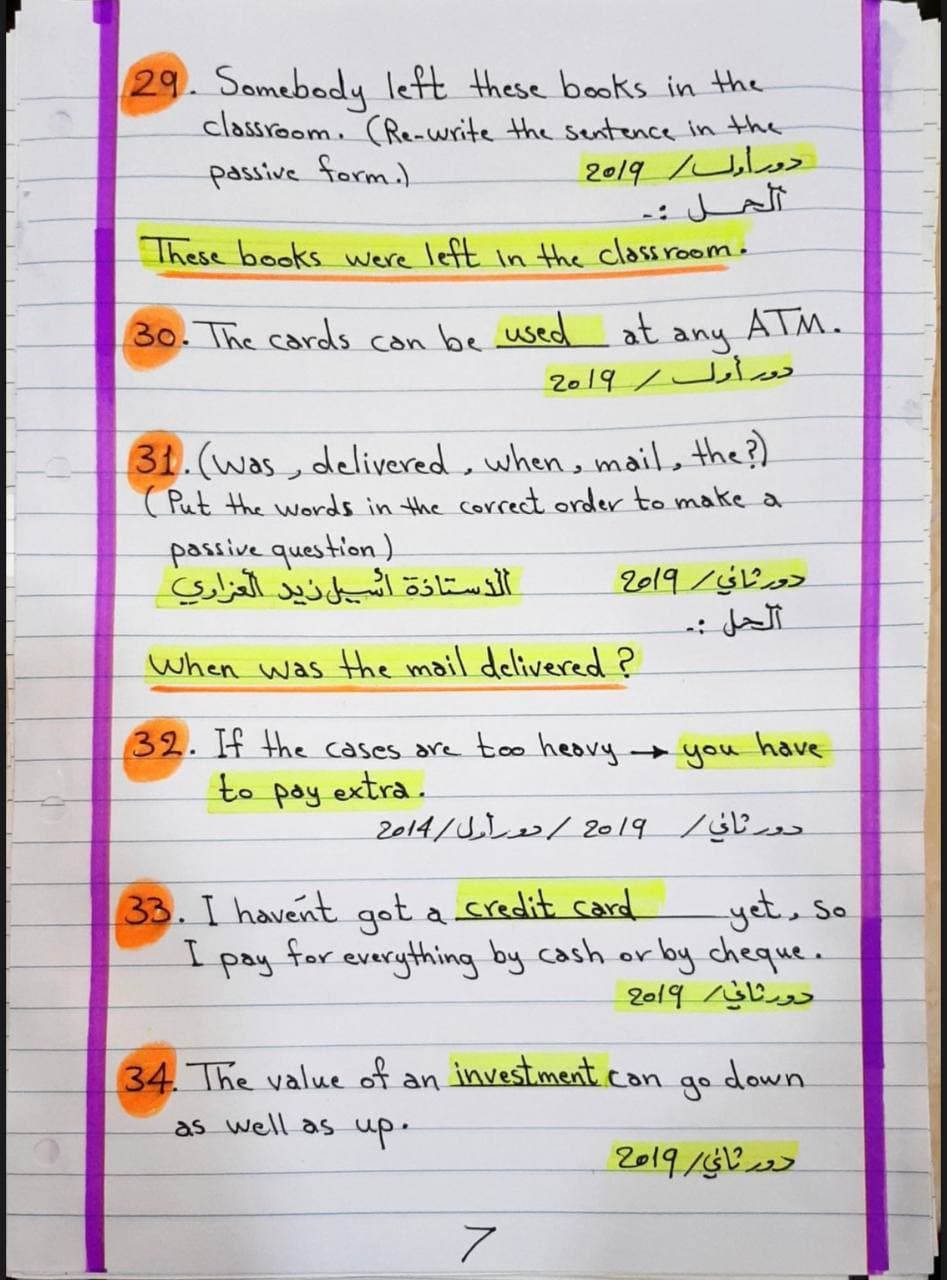 29. Somebody left these books in the
classroom. (Re-write the sentence in the
passive form.) دور أول / 2019
الحل :-
These books were left in the classroom.
30. The cards can be used at any ATM.
دور أول / 2019
31. (was, delivered, when, mail, the?)
(Put the words in the correct order to make a
passive question)
الأستاذة أسيل زيد العزاوي دور ثاني / 2019
الحل :-
When was the mail delivered?
32. If the cases are too heavy → you have
to pay extra.
دور ثاني / 2019 / دور أول / 2014
33. I haven't got a credit card yet, so
I pay for everything by cash or by cheque.
دور ثاني / 2019
34. The value of an investment can go down
as well as up.
دور ثاني / 2019
7